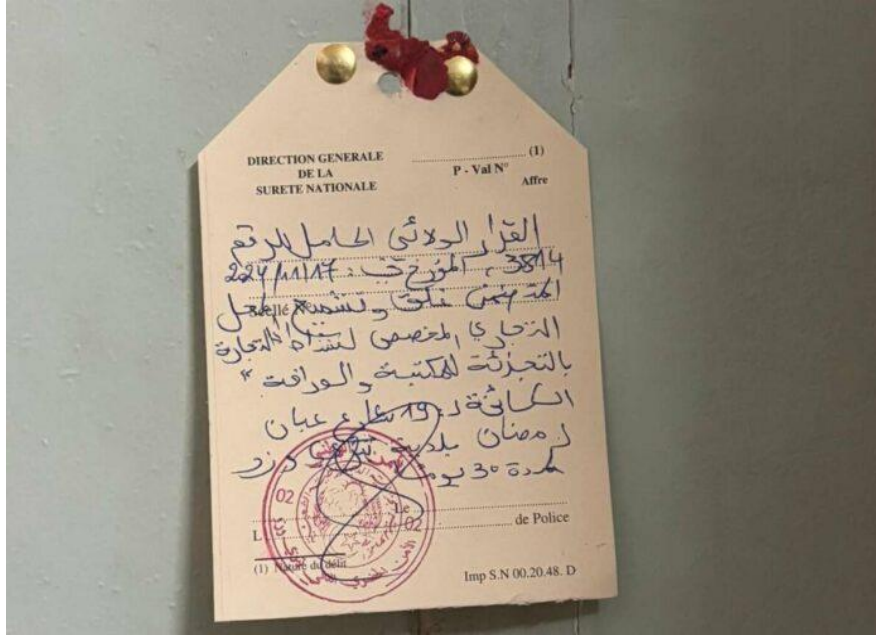 DIRECTION GENERALE
DE LA
SURETE NATIONALE
.................... (1)
P - Val N°
Affre
القرار الولائي الحامل للرقم
3814 ، المؤرخ في : 224/11/17
المتضمن غلق وتشميع المحل
Scellé N°
التجاري المخصص لنشاط "التجارة
بالتجزئة للمكتبة والوراقة"
الكائن بـ : 19 شارع عبان
رمضان بلدية تيزي وزو
لمدة 30 يوما
Le
L .................... de Police
02
02
(1) Nature du délit
Imp S.N 00.20.48. D